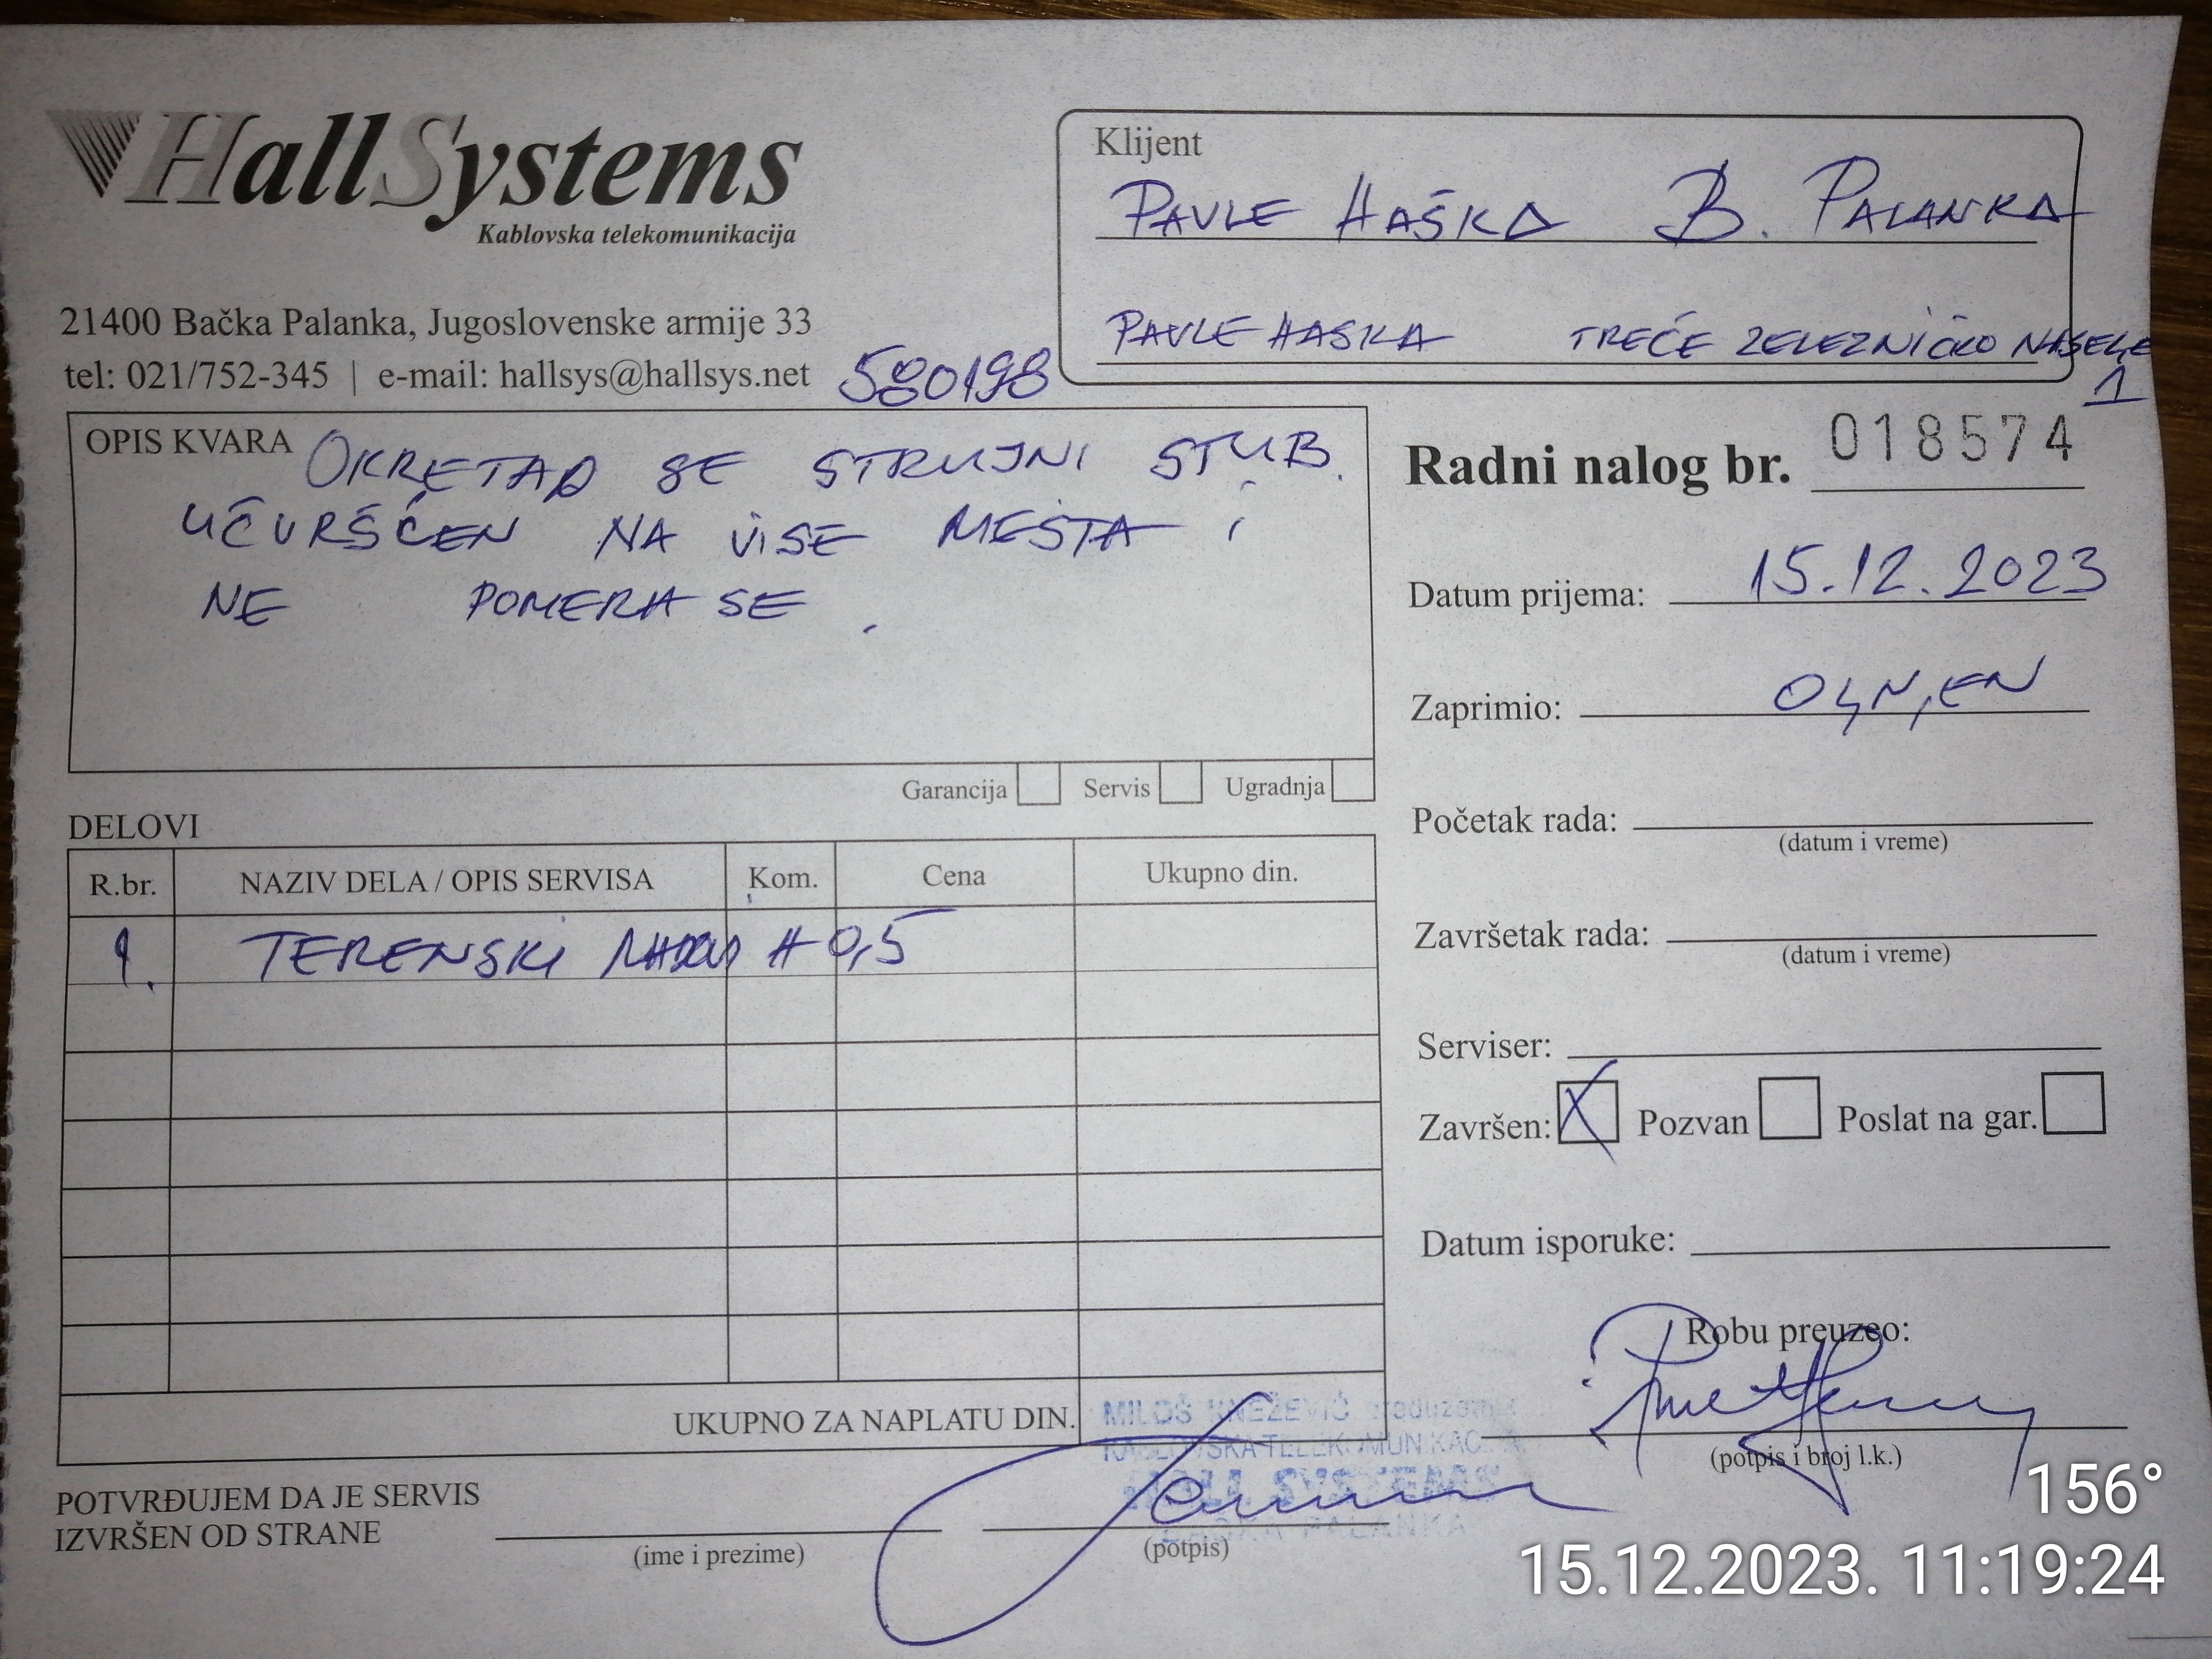 HallSystems
Kablovska telekomunikacija
21400 Bačka Palanka, Jugoslovenske armije 33
tel: 021/752-345 | e-mail: hallsys@hallsys.net
580198
Klijent
PAVLE HAŠKA B. PALANKA
PAVLE HASKA TREĆE ZELEZNIČKO NASELE
1
OPIS KVARA
OKRETAO SE STRUJNI STUB.
UČVRŠĆEN NA VISE MESTA i
NE POMERA SE.
Garancija Servis Ugradnja
Radni nalog br. 018574
Datum prijema: 15.12.2023
Zaprimio: OGNJEN
Početak rada:
(datum i vreme)
Završetak rada:
(datum i vreme)
Serviser:
Završen: X Pozvan Poslat na gar.
Datum isporuke:
Robu preuzeo:
(potpis i broj l.k.)
DELOVI
R.br. NAZIV DELA / OPIS SERVISA Kom. Cena Ukupno din.
1. TERENSKI H 0,5
UKUPNO ZA NAPLATU DIN.
MILOŠ KNEŽEVIĆ preduzetnik
KABLOVSKA TELEKOMUNIKACIJA
HALL SYSTEMS
BAČKA PALANKA
POTVRĐUJEM DA JE SERVIS
IZVRŠEN OD STRANE
(ime i prezime) (potpis)
156°
15.12.2023. 11:19:24